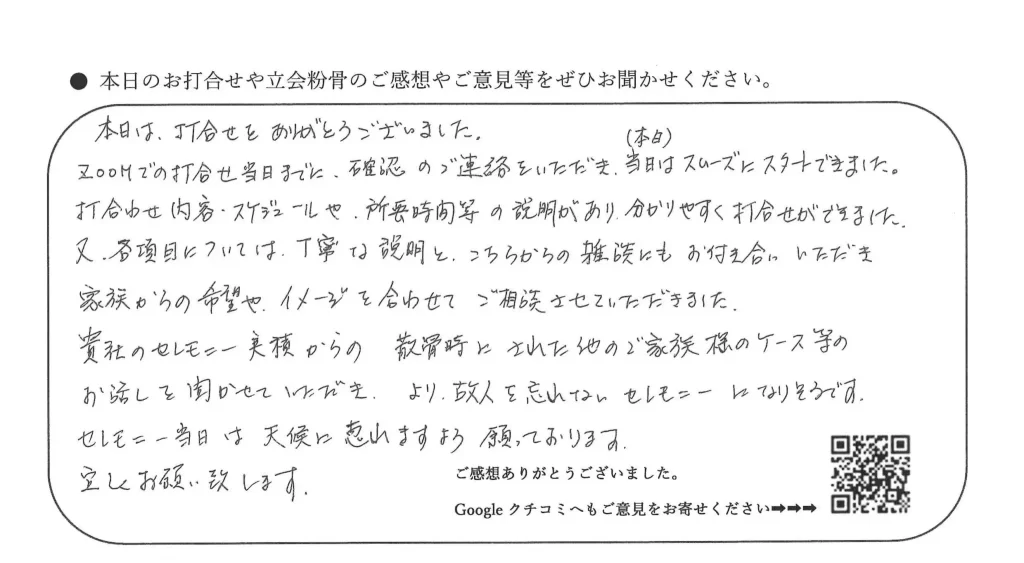 ● 本日のお打合せや立会粉骨のご感想やご意見等をぜひお聞かせください。
本日は、打合せを ありがとうございました。
(本日)
ZOOMでの打合せ当日までに、確認のご連絡をいただき、当日はスムーズにスタートできました。
打合わせ内容・スケジュールや、所要時間等の説明があり、分かりやすく打合せができました。
又、各項目については、丁寧な説明と、こちらからの雑談にもお付き合いいただき
家族からの希望や、イメージを合わせてご相談させていただきました。
貴社のセレモニー実積からの 散骨時にされた他のご家族様のケース等の
お話しを聞かせていただき、より、故人を忘れないセレモニーになりそうです。
セレモニー当日は天候に恵れますよう願っております。
宜しくお願い致します。
ご感想ありがとうございました。
Google クチコミへもご意見をお寄せください➡➡➡